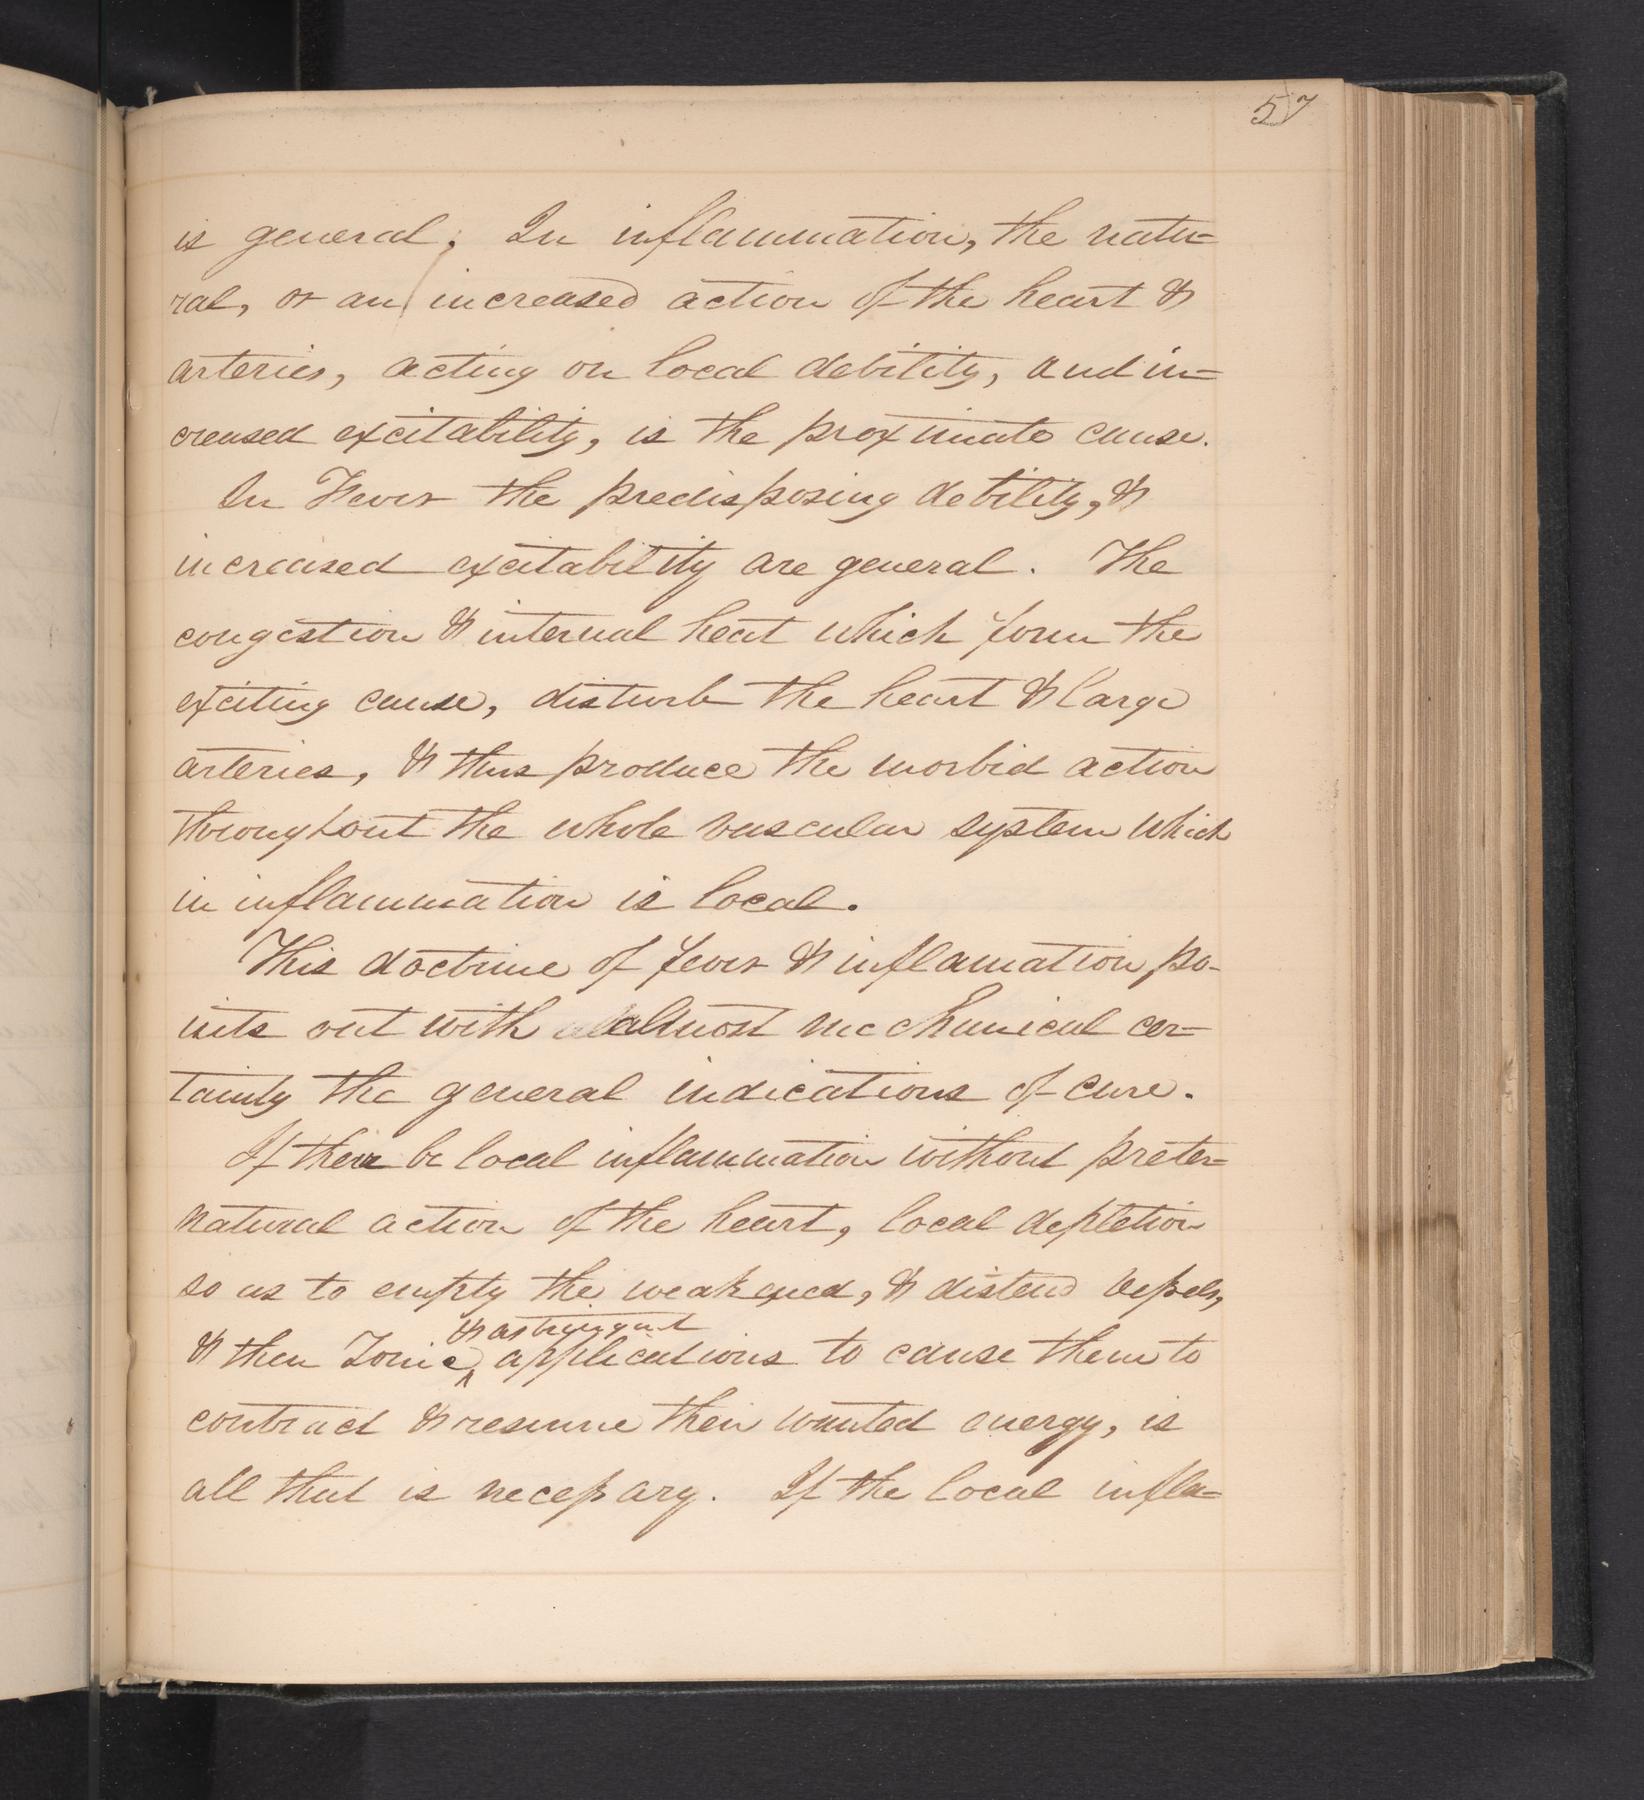 57
is general; In inflammation, the natu=
ral, or an increased action of the heart &
arteries, acting on local debility, and in=
creased excitability, is the proximate cause.
In Fever the predisposing debility, &
increased excitability are general. The
congestion & internal heat which form the
exciting cause, disturb the heart & large
arteries, & thus produce the morbid action
throughout the whole vascular system which
in inflammation is local.
This doctrine of fever & inflamation po-
ints out with almost mechanical cer=
tainty the general indications of cure.
If there be local inflammation without preter=
natural action of the heart, local depletion
so as to empty the weakened, & distend vessels,
& astringent
& then Tonic, applications to cause them to
contract & resume their wonted energy, is
all that is necessary. If the local infla=